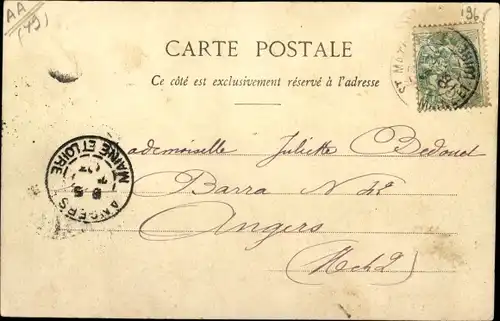 AA
(49)
196
CARTE POSTALE
Ce côté est exclusivement réservé à l'adresse
ANGERS
MAINE ET LOIRE
Mademoiselle Juliette Bedouet
Barra
Angers